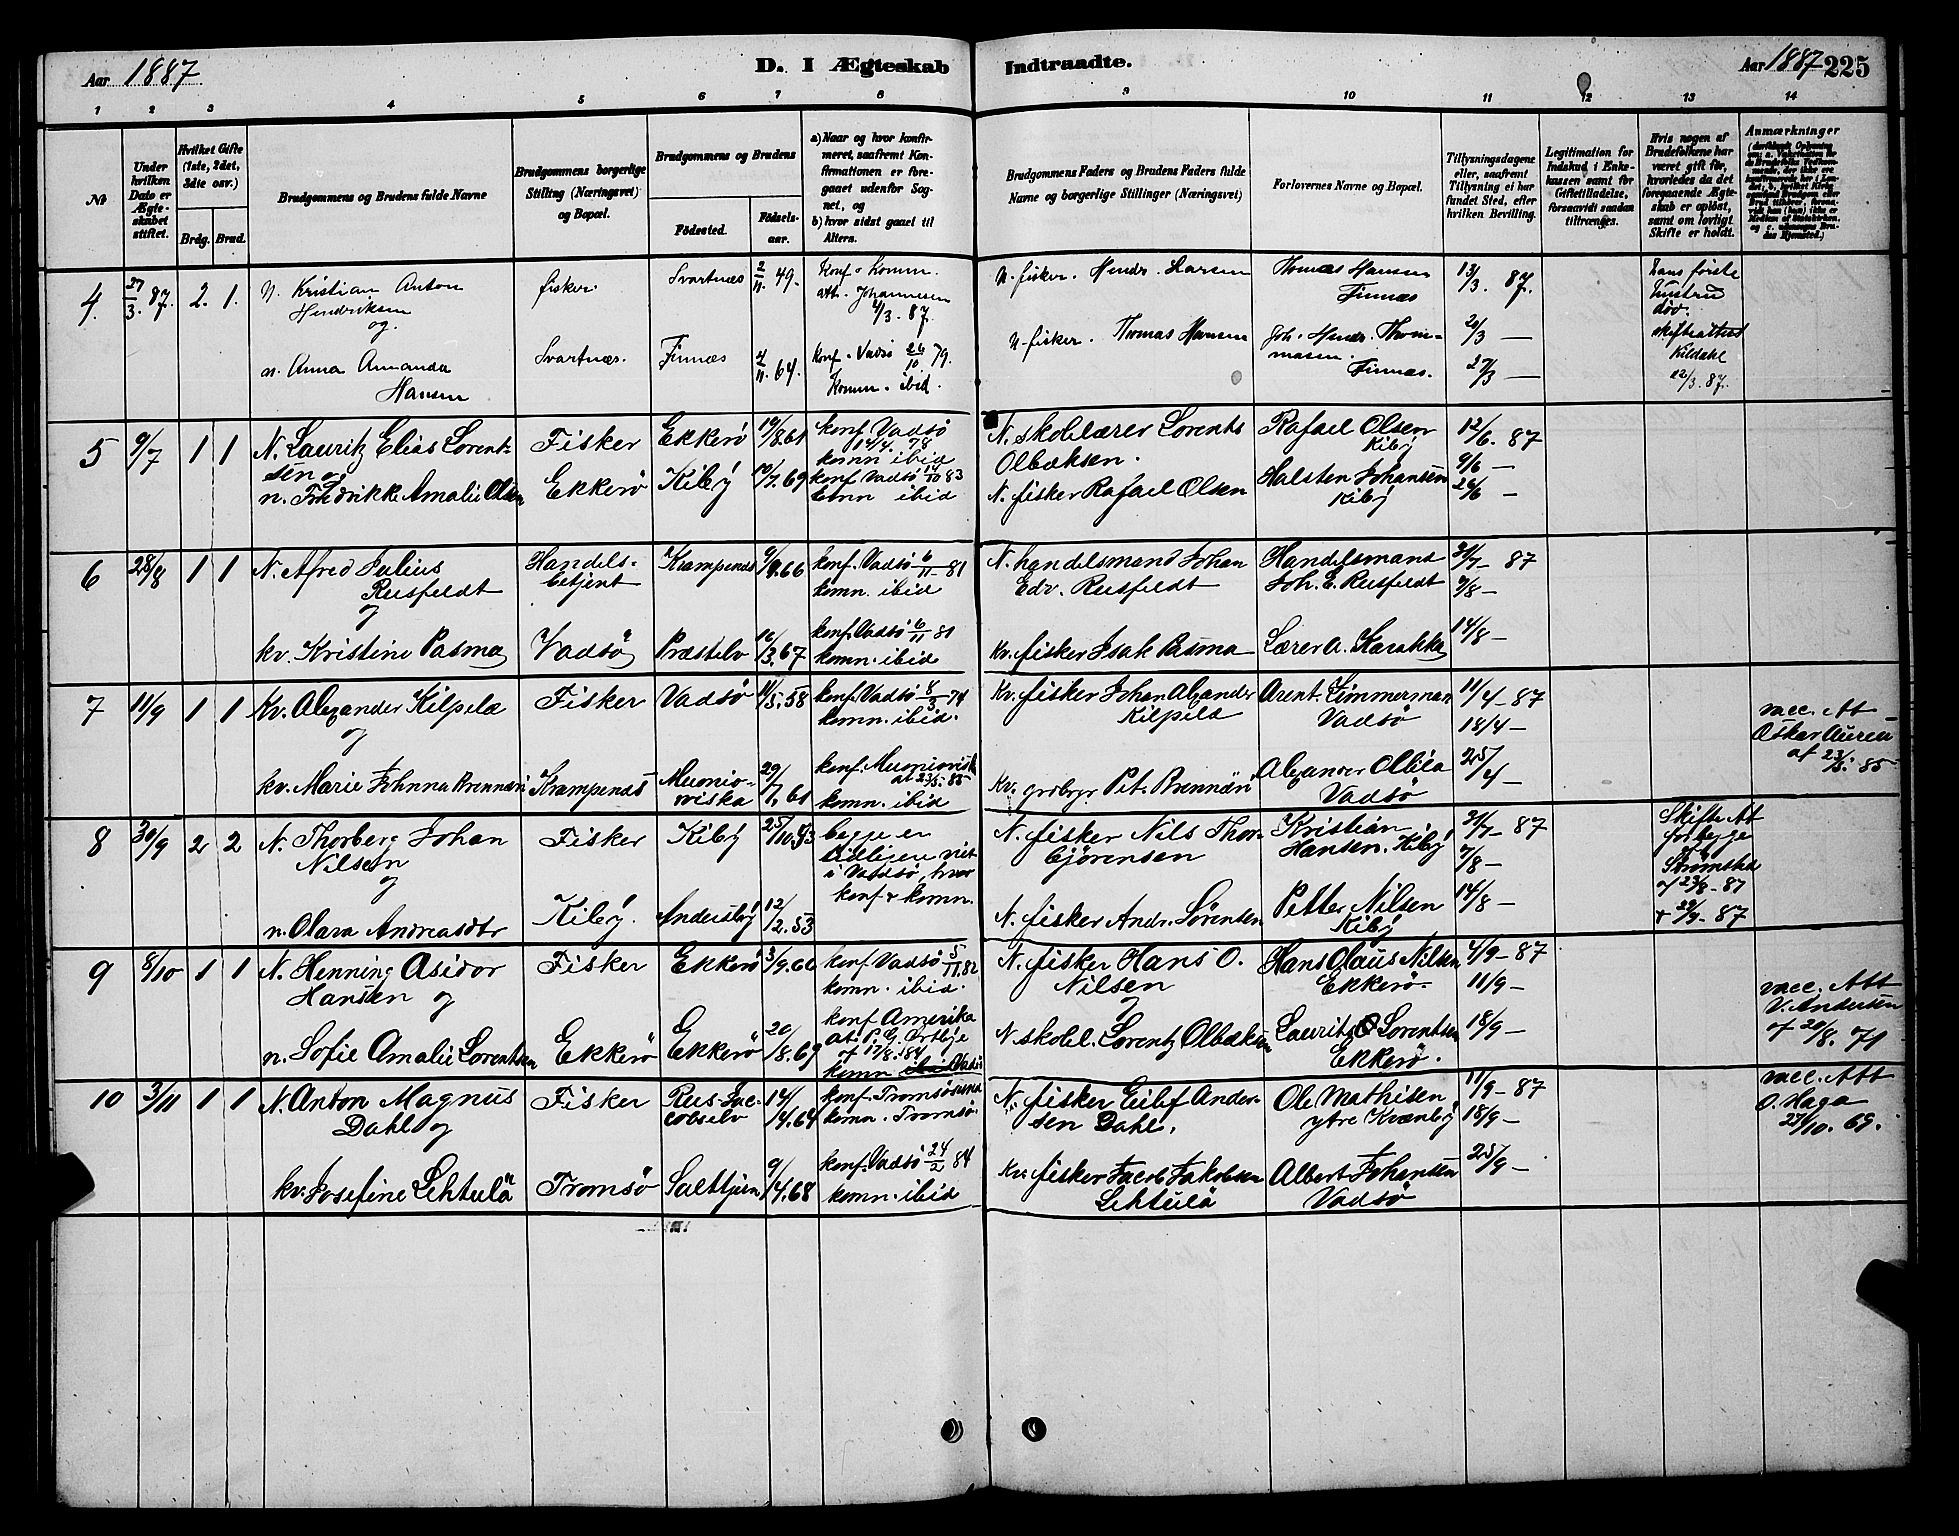 Aar 1887
D. I Ægteskab
Indtraadte.
Aar 1887 225
1 2 3 4 5 6 7 8 9 10 11 12 13 14
№
Under hvilken Dato er Ægteskabet stiftet.
Hvilket Gifte (1ste, 2det, 3die osv.)
Brdg. Brud.
Brudgommens og Brudens fulde Navne
Brudgommens borgerlige Stilling (Næringsvei) og Bopæl.
Brudgommens og Brudens
Födested.
Födselsaar.
a) Naar og hvor konfirmeret, saafremt Konfirmationen er foregaaet udenfor Sognet, og
b) hvor sidst gaaet til Alters.
Brudgommens Faders og Brudens Faders fulde Navne og borgerlige Stillinger (Næringsvei)
Forlovernes Navne og Bopæl.
Tillysningsdagene eller, saafremt Tillysning ei har fundet Sted, efter hvilken Bevilling.
Legitimation for Indskud i Enkekassen samt for Giftetilladelse, forsaavidt saadan tiltrænges.
Hvis nogen af Brudefolkene har været gift før, hvorledes da det foregaaende Ægteskab er oplöst, samt om lovligt Skifte er holdt.
Anmærkninger
4. 27/3. 87. 2. 1.
N. Kristian Anton
Hendriksen
og.
n. Anna Amanda
Hansen
fisker.
Svartnæs.
Svartnæs 2/11. 49.
Finnæs 4/11. 64.
Konf. o Komm.
att. Johannesen
4/3. 87.
Konf. Vadsö 26/10 79.
Komm. ibid.
N. fisker. Hendr. Larsen
N. fisker. Thomas Hansen
Thomas Hansen
Finnæs
Joh. Hendr. Thommasen.
Finnæs.
13/3. 87.
20/3 —
27/3 —
Hans første
hustru
död.
skifteattest
Kildahl
12/3. 87.
5 9/7 1 1
N. Lauritz Elias Lorentsen og
n. Fredrikke Amalie Olsen
Fisker
Ekkerö
Ekkerö 19/8.61
Kiby 10/7.69
konf Vadsö
14/4. 78
komn ibid
konf Vadsö 14/10 83
komn ibid
N. skolelærer Lorents
Olbæksen.
N. fisker Rafael Olsen
Rafael Olsen
Kiby
Halsten Johansen
Kiby
12/6. 87
9/6 —
26/6 —
6 28/8 1 1
N. Alfred Julius
Rusfeldt
og
kv. Kristine Pasma
Handelsbetjent
Vadsö
Krampenæs 9/9.66
Præstelv 16/3.67
konf. Vadsö 6/11 - 81
komn. ibid
konf. Vadsö 6/11 81
komn. ibid
N. handelsmand Johan
Edv. Rusfeldt
Kv. fisker Isak Pasma
Handelsmand
Joh. E. Rusfeldt
Lærer A. Karakka
31/7 — 87
7/8 —
14/8 —
7 11/9 1 1
Kv. Alexander Kilpelæ
og
kv. Marie Johnna Brennæri
Fisker
Krampenæs
Vadsö 11/5.58
Muonioniska 29/7.61
konf. Vadsö 8/3 - 74
komn. ibid.
konf. Muonionisk
at 23/5. 85
komn. ibid
Kv. fisker Johan Alexander
Kilpelæ
Kv. grdbgr Pet. Brennæri
Arent Zimmerman
Vadsö
Alexander Ollila
Vadsö
11/4 — 87
18/4 —
25/4 —
vacc. Att
Oskar Aureu
af 23/5. 85
8 30/9 2 2
N. Thorberg Johan
Nilsen
og
n. Olava Andreasdtr
Fisker
Kiby.
Kiby 25/10.43
Andersby 12/2.53
begge er
tidligere viet
i Vadsö, hvor
konf & komn.
N. fisker Nils Thorbjörensen
N. fisker Andr. Sörensen
Kristian
Hansen. Kiby
Petter Nilsen
Kiby
31/7 — 87
7/8 —
14/8 —
Skifte Att
for begge
Strömsted
af 23/8 - 87
& 29/9 - 87
9 8/10 1 1
N. Henning Asidor
Hansen og
n. Sofie Amalie Lorentsen
Fisker
Ekkerö
Ekkerö 3/9.60
Ekkerö 20/8.69
konf Vadsö 5/11.82
komn. ibid.
konf Amerika
at. P. G. Ostbye
af 17/8. 84
komn ibid Vadsö
N. fisker Hans O.
Nilsen
og
N. skolel. Lorentz Olbæksen
Hans Olaus Nilsen
Ekkerö
Laurits O Lorentsen
Ekkerö.
4/9 — 87
11/9 —
18/9 —
vacc. Att
V. Andersen
af 20/8. 71
10 3/11 1 1
N. Anton Magnus
Dahl og
kv. Josefine Lehtulä
Fisker
Tromsö
Rus-Jacobselv 14/4.64
Salttjern 9/4.68
konf. Tromsösund
komn. Tromsö.
konf. Vadsö 24/2 84
komn. ibid
N. fisker Eilef Andersen Dahl,
Kv. fisker Jacob Jakobsen
Lehtulä
Ole Mathisen
ytre Kvænby
Albert Johansen
Vadsö
11/9 — 87
18/9 —
25/9 —
vacc. Att
O. Haga
27/10. 69.